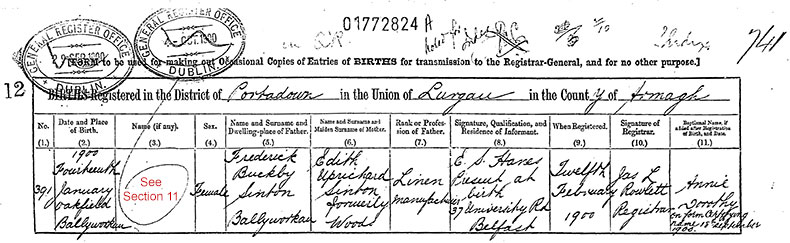 01772824 A
741
GENERAL REGISTER OFFICE
DUBLIN.
GENERAL REGISTER OFFICE
OCT. 1900
DUBLIN.
[FORM to be used for making out Occasional Copies of Entries of BIRTHS for transmission to the Registrar-General, and for no other purpose.]
12
BIRTHS Registered in the District of Portadown in the Union of Lurgan in the County of Armagh
No. (1.)
Date and Place of Birth. (2.)
Name (if any). (3.)
Sex. (4.)
Name and Surname and Dwelling-place of Father. (5.)
Name and Surname and Maiden Surname of Mother. (6.)
Rank or Profession of Father. (7.)
Signature, Qualification, and Residence of Informant. (8.)
When Registered. (9.)
Signature of Registrar. (10.)
Baptismal Name, if added after Registration of Birth, and Date. (11.)
391
1900
Fourteenth
January
Oakfield
Ballyworkan
See
Section 11.
Female
Frederick
Buckby
Sinton
Ballyworkan
Edith
Uprichard
Sinton
formerly
Woods
Linen
manufacturer
E. S. Hanes
Present at
birth
37 University Rd
Belfast
Twelfth
February
1900
Jas L
Rowlett
Registrar
Annie
Dorothy
on form certifying
name 15 September
1900.